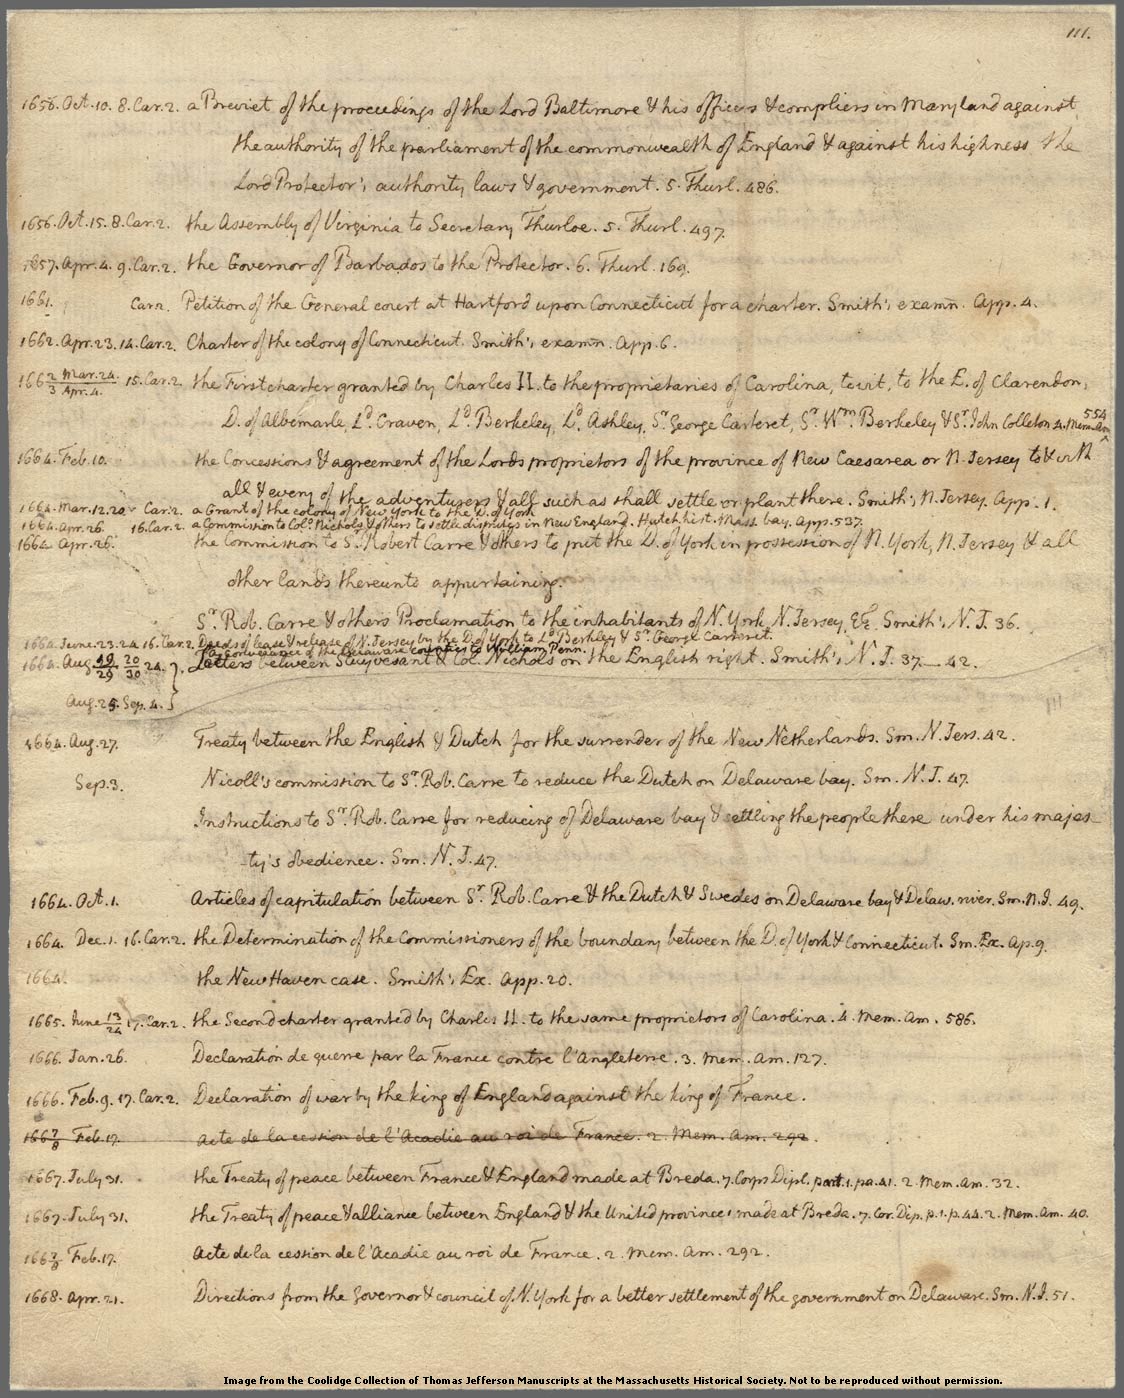 111.
1656. Oct. 10. 8. Car. 2. a Breviet of the proceedings of the Lord Baltimore & his officers & compliers in Maryland against
the authority of the parliament of the commonwealth of England & against his highness the
Lord Protector's authority laws & government. 5. Thurl. 486.
1656. Oct. 15. 8. Car. 2. the Assembly of Virginia to Secretary Thurloe. 5. Thurl. 497.
1657. Apr. 4. 9. Car. 2. the Governor of Barbados to the Protector. 6. Thurl. 169.
1661. Car. 2. Petition of the General court at Hartford upon Connecticut for a charter. Smith's examn. App. 4.
1662. Apr. 23. 14. Car. 2. Charter of the colony of Connecticut. Smith's examn. App. 6.
166 2/3 Mar. 24. / Apr. 4. 15. Car. 2. the First charter granted by Charles II. to the proprietaries of Carolina, to wit, to the E. of Clarendon,
D. of Albemarle, Ld. Craven, Ld. Berkeley, Ld. Ashley, Sr. George Carteret, Sr. Wm. Berkeley & Sr. John Colleton 4. Mem. Am. 554
1664. Feb. 10. the Concessions & agreement of the Lords proprietors of the province of New Caesarea or N. Jersey to & with
all & every of the adventurers & all such as shall settle or plant there. Smith's N. Jersey. App. 1.
1664. Mar. 12. 20 Car. 2. a Grant of the colony of New York to the D. of York
1664. Apr. 26. 16. Car. 2. a Commission to Colo. Nichols & others to settle disputes in New England. Hutch. hist. Mass. bay. App. 537.
1664 Apr. 26. the Commission to Sr. Robert Carre & others to put the D. of York in possession of N. York, N. Jersey & all
other lands thereunto appurtaining.
Sr. Rob. Carre & others Proclamation to the inhabitants of N. York, N. Jersey, &c. Smith's N. J. 36.
1664. June. 23. 24. 16. Car. 2. Deeds of lease & release of N. Jersey by the D. of York to Ld. Berkley & Sr. George Carteret.
a conveiance of the Delaware counties to William Penn.
1664. Aug. 19/29 20/30 24. } Letters between Stuyvesant & Col. Nichols on the English right. Smith's N. J. 37—42.
Aug. 25. Sep. 4.
1664. Aug. 27. Treaty between the English & Dutch for the surrender of the New Netherlands. Sm. N. Jers. 42.
Sep. 3. Nicoll's commission to Sr. Rob. Carre to reduce the Dutch on Delaware bay. Sm. N. J. 47.
Instructions to Sr. Rob. Carre for reducing of Delaware bay & settling the people there under his majes-
-ty's obedience. Sm. N. J. 47.
1664. Oct. 1. Articles of capitulation between Sr. Rob. Carre & the Dutch & Swedes on Delaware bay & Delaw. river. Sm. N. J. 49.
1664. Dec. 1. 16. Car. 2. the Determination of the Commissioners of the boundary between the D. of York & Connecticut. Sm. Ex. Ap. 9.
1664. the New Haven case. Smith's Ex. App. 20.
1665. June 13/24 17. Car. 2. the Second charter granted by Charles II. to the same proprietors of Carolina. 4. Mem. Am. 586.
1666. Jan. 26. Declaration de guerre par la France contre l'Angleterre. 3. Mem. Am. 127.
1666. Feb. 9. 17. Car. 2. Declaration of war by the king of England against the king of France.
166 7/8 Feb. 17. Acte de la cession de l'Acadie au roi de France. 2. Mem. Am. 292.
1667. July 31. the Treaty of peace between France & England made at Breda. 7. Corps Dipl. part. 1. pa. 41. 2. Mem. Am. 32.
1667. July 31. the Treaty of peace & alliance between England & the United provinces made at Breda. 7. Cor. Dip. p. 1. p. 44. 2. Mem. Am. 40.
166 7/8 Feb. 17. Acte de la cession de l'Acadie au roi de France. 2. Mem. Am. 292.
1668. Apr. 21. Directions from the Governor & council of N. York for a better settlement of the government on Delaware. Sm. N. J. 51.
Image from the Coolidge Collection of Thomas Jefferson Manuscripts at the Massachusetts Historical Society. Not to be reproduced without permission.